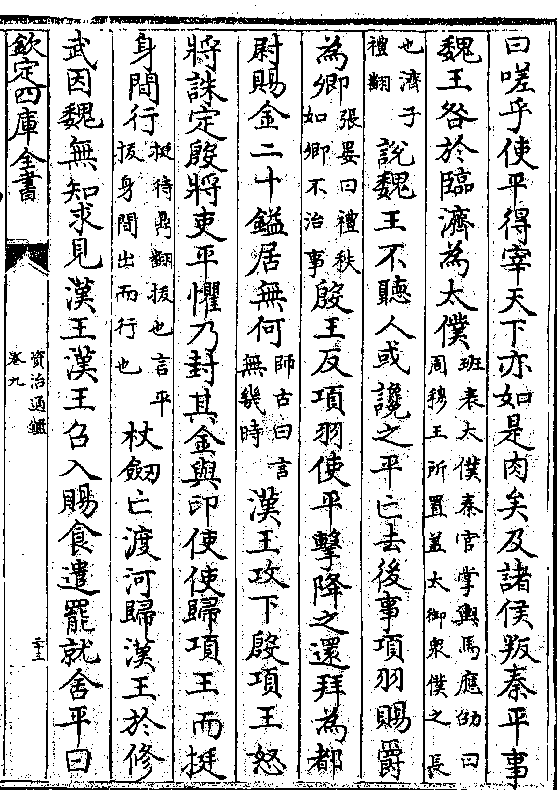 曰嗟乎使平得宰天下亦如是肉矣及諸侯叛秦平事
魏王咎於臨濟為太僕班表大僕秦官掌輿馬應劭曰周穆王所置蓋太御衆僕之長
也濟子禮翻說魏王不聽人或讒之平亡去後事項羽賜爵
為卿張晏曰禮秩如卿不治事殷王反項羽使平擊降之還拜為都
尉賜金二十鎰居無何師古曰言無幾時漢王攻下殷項王怒
將誅定殷將吏平懼乃封其金與印使使歸項王而挺
身間行挺待鼎翻拔也言平拔身間出而行也杖劒亡渡河歸漢王於修
武因魏無知求見漢王漢王召入賜食遣罷就舍平曰
欽定四庫全書
資治通鑑
卷九